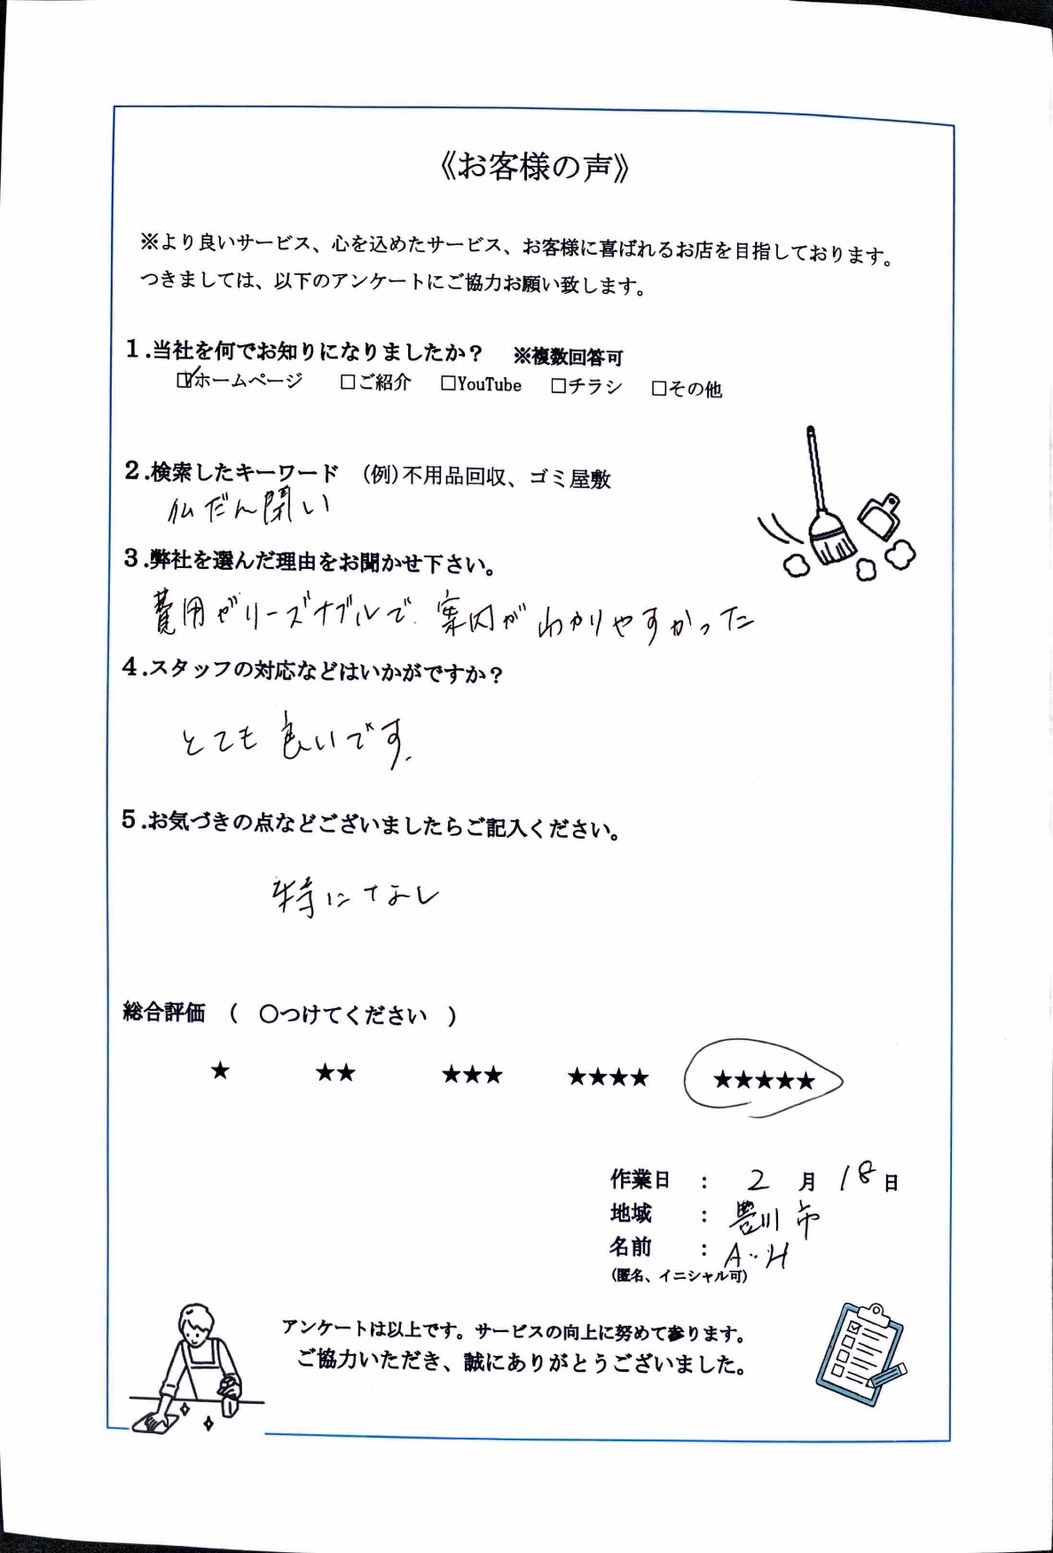 《お客様の声》
※より良いサービス、心を込めたサービス、お客様に喜ばれるお店を目指しております。
つきましては、以下のアンケートにご協力お願い致します。
1.当社を何でお知りになりましたか？ ※複数回答可
☑ホームページ □ご紹介 □YouTube □チラシ □その他
2.検索したキーワード (例)不用品回収、ゴミ屋敷
仏だん閉い
3.弊社を選んだ理由をお聞かせ下さい。
費用がリーズナブルで、案内がわかりやすかった
4.スタッフの対応などはいかがですか？
とても良いです。
5.お気づきの点などございましたらご記入ください。
特になし
総合評価 ( ○つけてください )
★ ★★ ★★★ ★★★★ ★★★★★
作業日 : 2 月 18 日
地域 : 豊川市
名前 : A・H
(匿名、イニシャル可)
アンケートは以上です。サービスの向上に努めて参ります。
ご協力いただき、誠にありがとうございました。